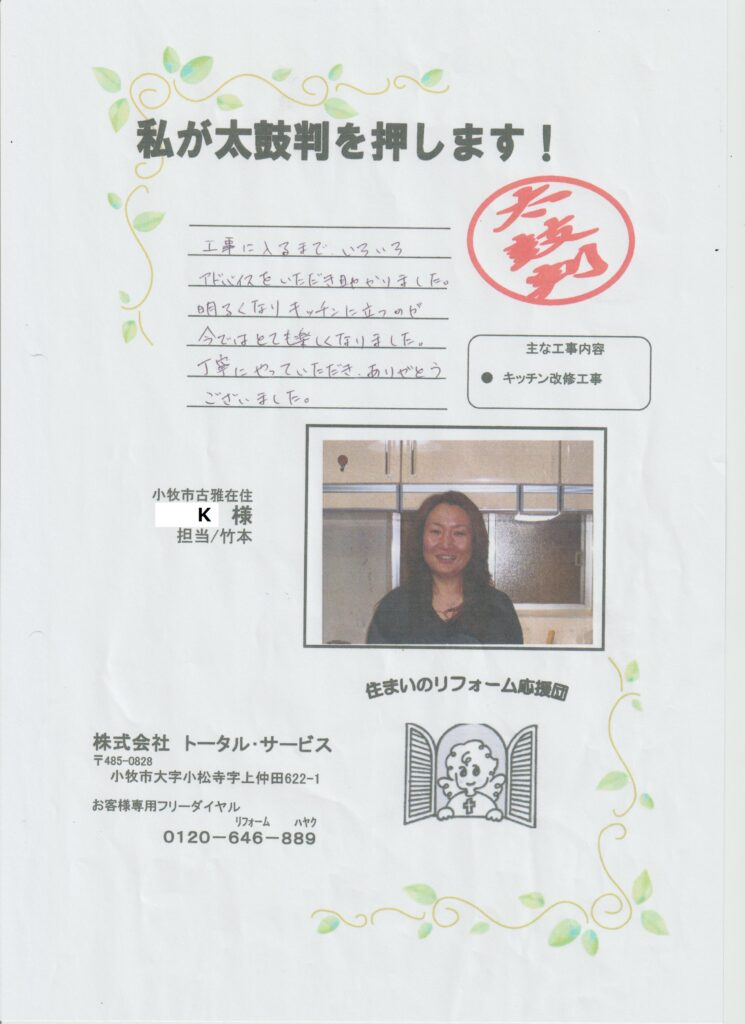 私が太鼓判を押します！
太鼓判
工事に入るまで、いろいろ
アドバイスをいただき助かりました。
明るくなりキッチンに立つのが
今ではとても楽しくなりました。
丁寧にやっていただき、ありがとう
ございました。
主な工事内容
● キッチン改修工事
小牧市古雅在住
K 様
担当/竹本
住まいのリフォーム応援団
株式会社 トータル・サービス
〒485-0828
小牧市大字小松寺字上仲田622-1
お客様専用フリーダイヤル
リフォーム ハヤク
0120-646-889